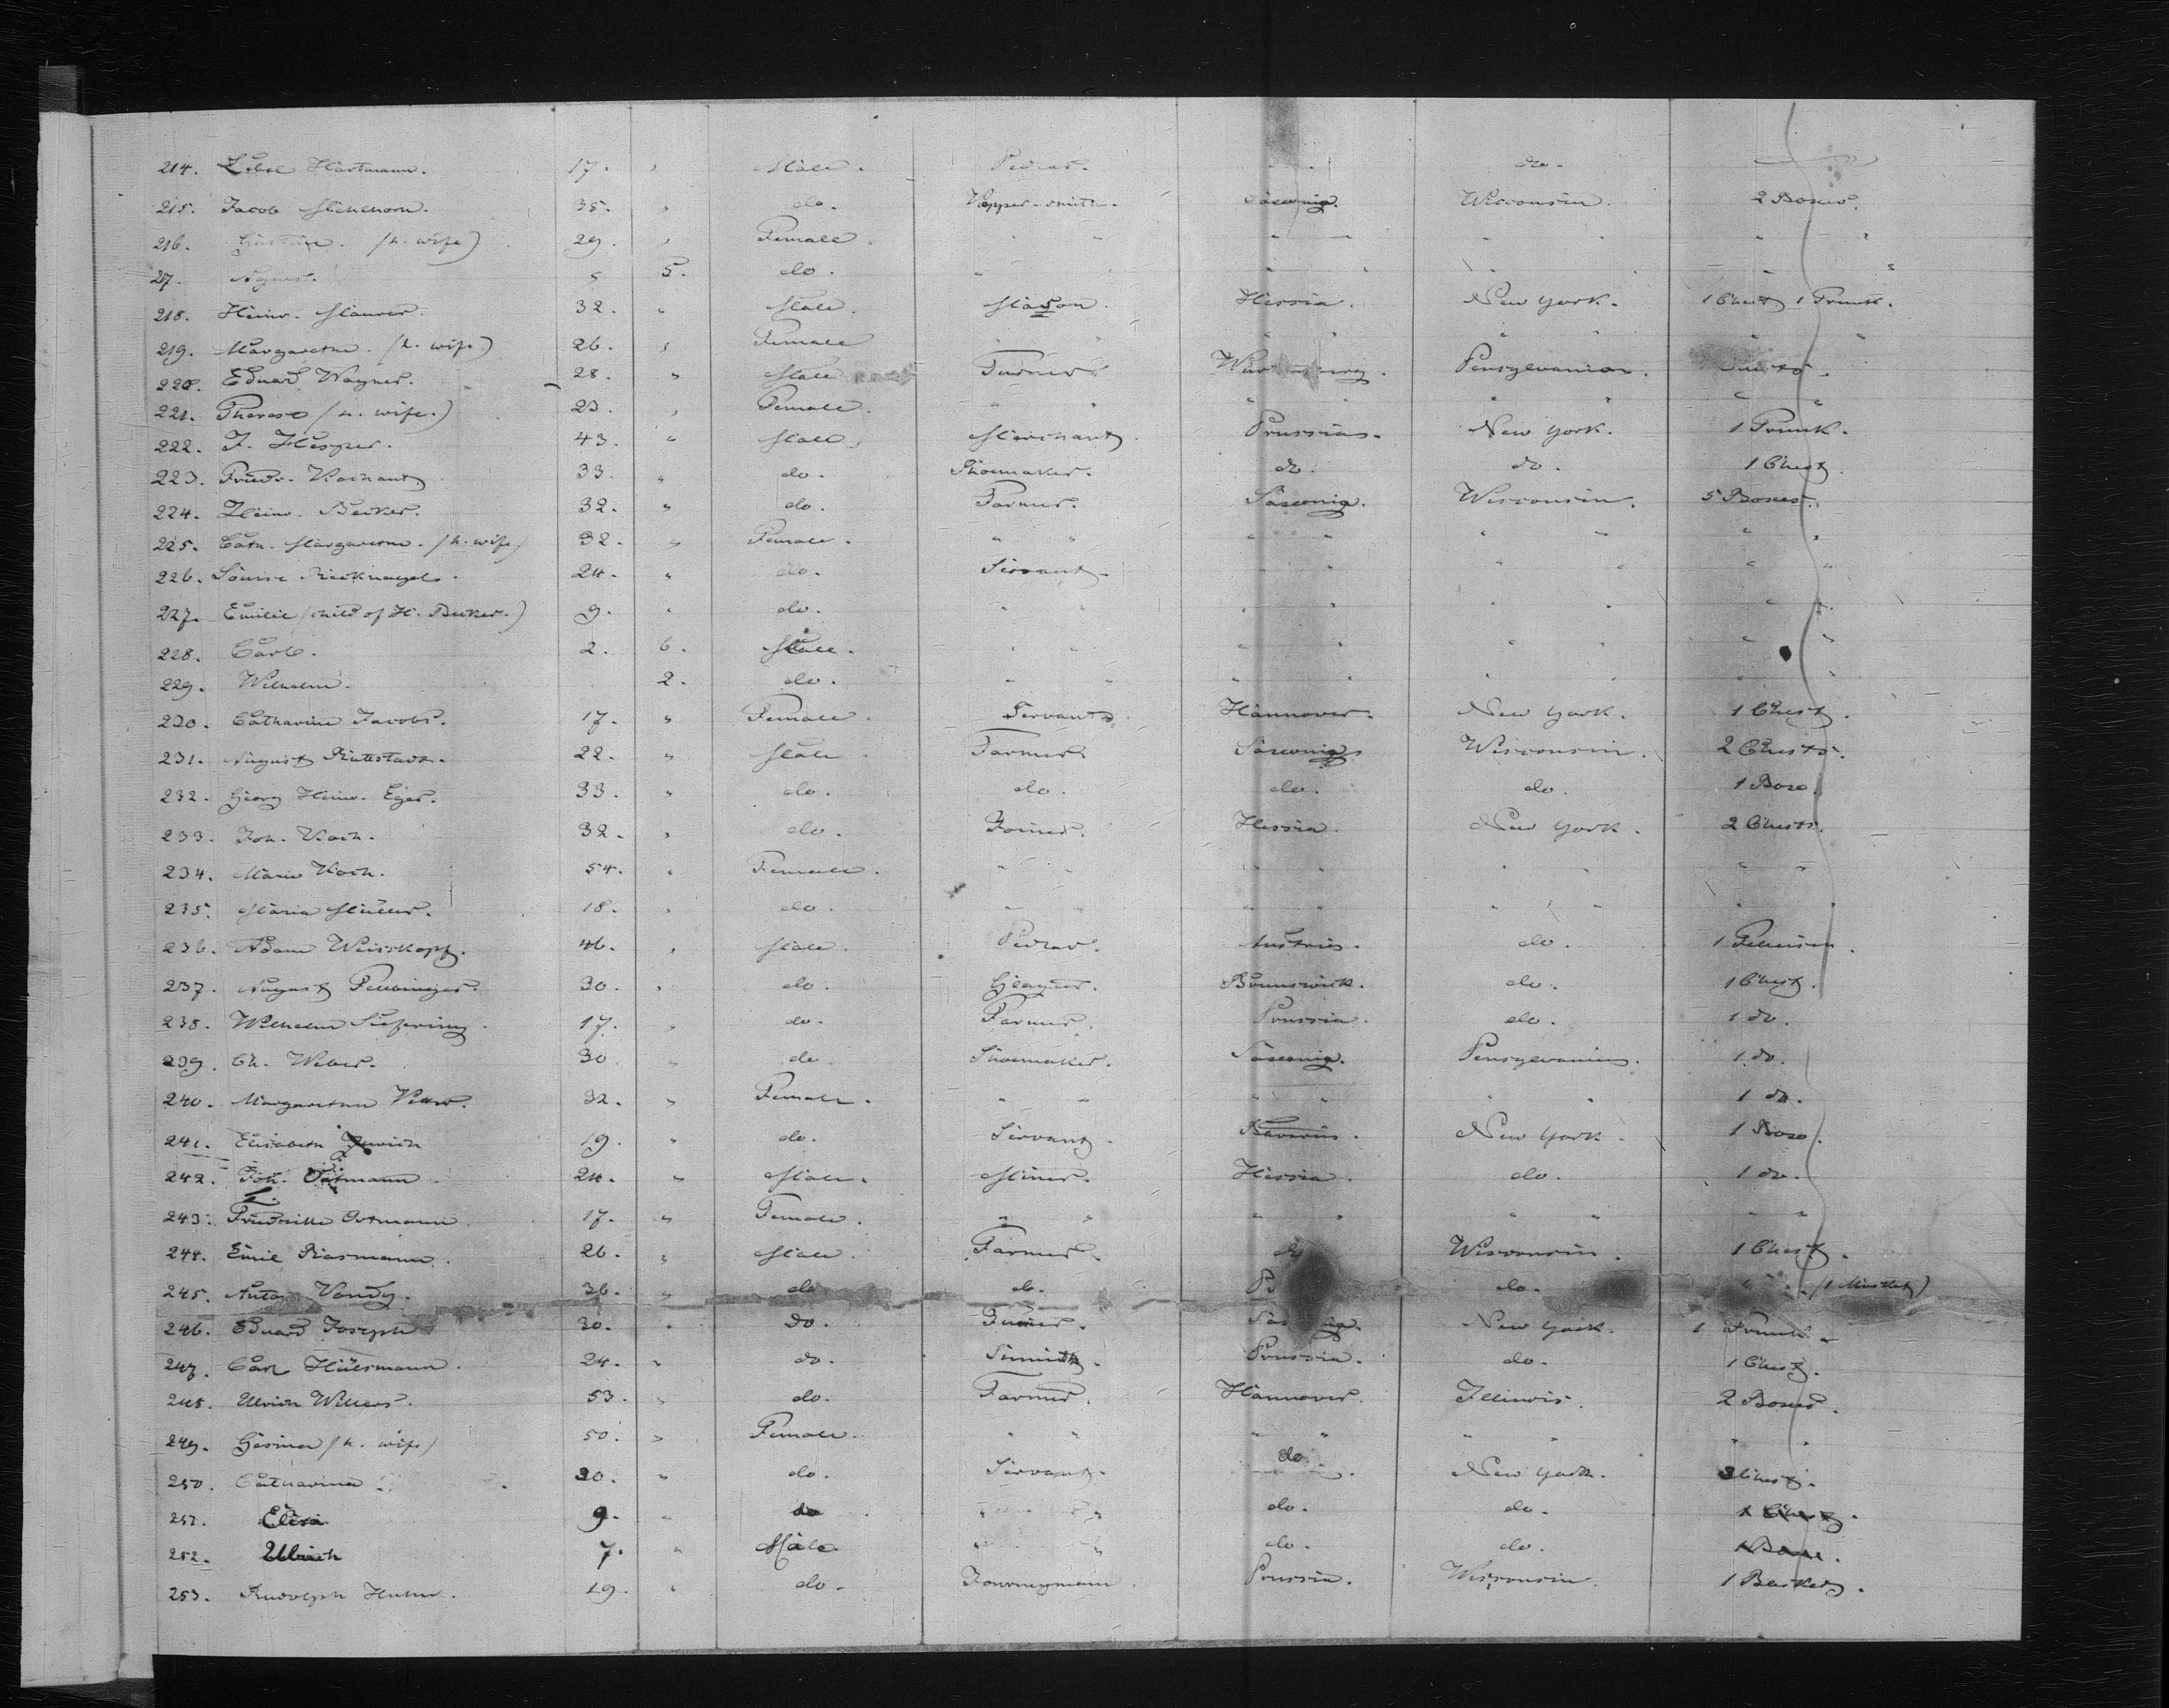 214. Hartmann. 17. " Male. do.
215. Jacob 35. " do. Kopper-smith. Saxonia. Wisconsin. 2 Boxes.
216. (h. wife) 29. " Female. " " " " " " " "
217. Agnes. " 5. do. " " " " " " " "
218. Heinr. Maurer. 32. " Male. Mason. Hessia. New York. 1 Chest 1 Trunk.
219. Margarethe. (h. wife) 26. " Female " " " " " " " "
220. Eduard Wagner. 28. " Male Turner Pensylvania.
221. Therese (h. wife.) 23. " Female. " " " " " " " "
222. F. Hesper. 43. " Male. Merchant. Prussia. New York. 1 Trunk.
223. Friedr. 33. " do. Shoemaker. do. do. 1 Chest.
224. Heinr. Becker. 32. " do. Farmer. Saxonia. Wisconsin. 5 Boxes.
225. Cath. Margarethe. (h. wife) 32. " Female. " " " " " " " "
226. Louise Riecknagel. 24. " do. Servant " " " " " "
227. Emilie (child of H. Becker.) 9. " do. " " " " " " " "
228. Carl. 2. 6. Male. " " " " " " " "
229. Wilhelm. 2. do. " " " " " " " "
230. Catharine Jacobs. 17. " Female. Servant. Hannover. New York. 1 Chest.
231. August 22. " Male Farmer. Saxonia Wisconsin. 2 Chests.
232. Georg Heinr. Eger. 33. " do. do. do. do. 1 Boxe.
233. Joh. Koch. 32. " do. Joiner. Hessia. New York. 2 Chests.
234. Marie Koch. 54. " Female. " " " " " " " "
235. Maria Müller. 18. " do. " " " " " "
236. Adam Weisskopf. 46. " Male. Austria. do. 1
237. August 30. " do. Brunswick. do. 1 Chest.
238. Wilhelm 17. " do. Farmer. Prussia. do. 1 do.
239. Ch. Weber. 30 " do. Shoemaker. Saxonia. Pensylvania. 1 do.
240. Margarethe 32. " Female. " " " " " " 1 do.
241. Elisabeth 19. " do. Servant. Bavaria. New York. 1 Boxe.
242. Joh. Ortmann. 24. " Male. Miner. Hessia. do. 1 do.
243. Ortmann. 17. " Female. " " " " " " " "
244. Emil Rasmann. 26. " Male. Farmer. do Wisconsin. 1 Chest.
245. Anton 36. " do do. do.
246. Eduard Joseph 30. " do. New York. 1 Trunk.
247. Carl Hülsmann. 24. " do. Prussia. do. 1 Chest.
248. Ulrich Willers. 53. " do. Farmer. Hannover. Illinois. 2 Boxes.
249. Gesina (h. wife) 50. " Female. " " " " " " " "
250. Catharina 20. " do. Servant. do New York. Chest.
251. Elisa 9. " do " " do. do. 1 Chest.
252. Ulrich 7. " Male " " do. do.
253. Rudolph 19. " do. Journeyman. Prussia. Wisconsin. 1 Basket.